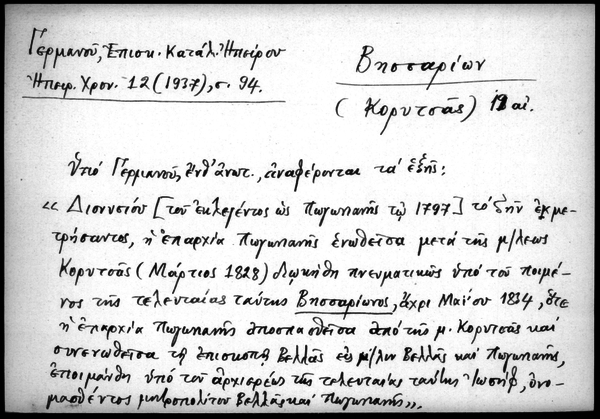 Γερμανοῦ, Ἐπισκ. Κατάλ. Ἠπείρου
Ἠπειρ. Χρον. 12 (1937), σ. 94.
Βησσαρίων
(Κορυτσᾶς) 19 αἰ.
Ὑπό Γερμανοῦ, ἔνθ' ἀνωτ., ἀναφέρονται τά ἑξῆς:
«Διονυσίου [τοῦ ἐκλεγέντος ὡς Πωγωνιανῆς τῷ 1797] τό ζῆν ἐκμε-
τρήσαντος, ἡ ἐπαρχία Πωγωνιανῆς ἑνωθεῖσα μετά τῆς μ/λεως
Κορυτσᾶς (Μάρτιος 1828) διῳκήθη πνευματικῶς ὑπό τοῦ ποιμέ-
νος τῆς τελευταίας ταύτης Βησσαρίωνος, ἄχρι Μαΐου 1834, ὅτε
ἡ ἐπαρχία Πωγωνιανῆς ἀποσπασθεῖσα ἀπό τῆς μ. Κορυτσᾶς καί
συνενωθεῖσα τῇ ἐπισκοπῇ Βελλᾶς εἰς μ/λιν Βελλᾶς καί Πωγωνιανῆς,
ἐποιμάνθη ὑπό τοῦ ἀρχιερέως τῆς τελευταίας ταύτης Ἰωσήφ, ὀνο-
μασθέντος μητροπολίτου Βελλᾶς καί Πωγωνιανῆς».